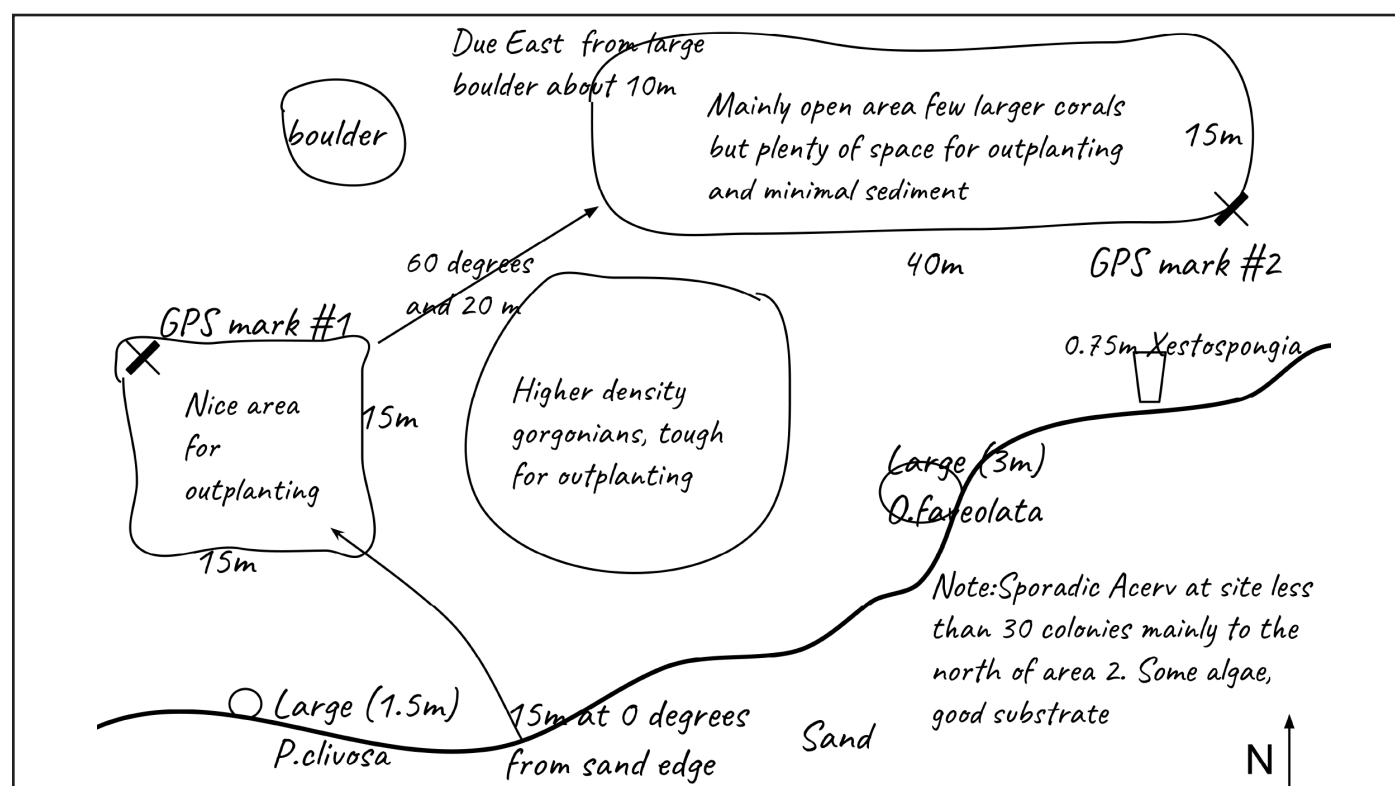 Due East from large
boulder about 10m
boulder
Mainly open area few larger corals
but plenty of space for outplanting
and minimal sediment
15m
60 degrees
and 20 m
40m
GPS mark #2
GPS mark #1
0.75m Xestospongia
Nice area
for
outplanting
15m
15m
Higher density
gorgonians, tough
for outplanting
Large (3m)
O.faveolata
Note:Sporadic Acerv at site less
than 30 colonies mainly to the
north of area 2. Some algae,
good substrate
Large (1.5m)
P.clivosa
15m at 0 degrees
from sand edge
Sand
N